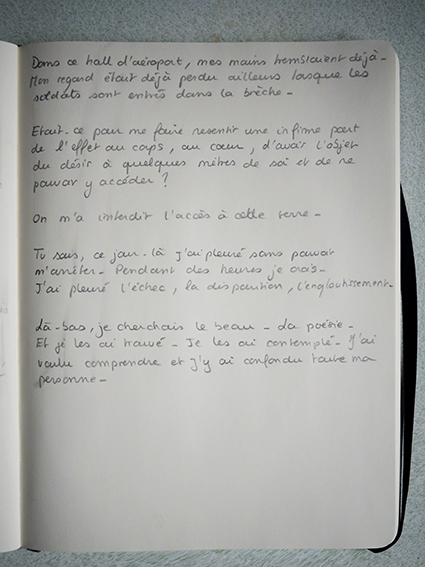 Dans ce hall d'aéroport, mes mains tremblaient déjà -
Mon regard était déjà perdu ailleurs lorsque les
soldats sont entrés dans la brèche -
Etait-ce pour me faire ressentir une infime part
de l'effet au corps, au cœur, d'avoir l'objet
du désir à quelques mètres de soi et de ne
pouvoir y accéder ?
On m'a interdit l'accès à cette terre -
Tu sais, ce jour-là j'ai pleuré sans pouvoir
m'arrêter - Pendant des heures je crois -
J'ai pleuré l'échec, la disparition, l'engloutissement -
Là-bas, je cherchais le beau - La poésie -
Et je les ai trouvé - Je les ai contemplé - J'ai
voulu comprendre et j'y ai confondu toute ma
personne -